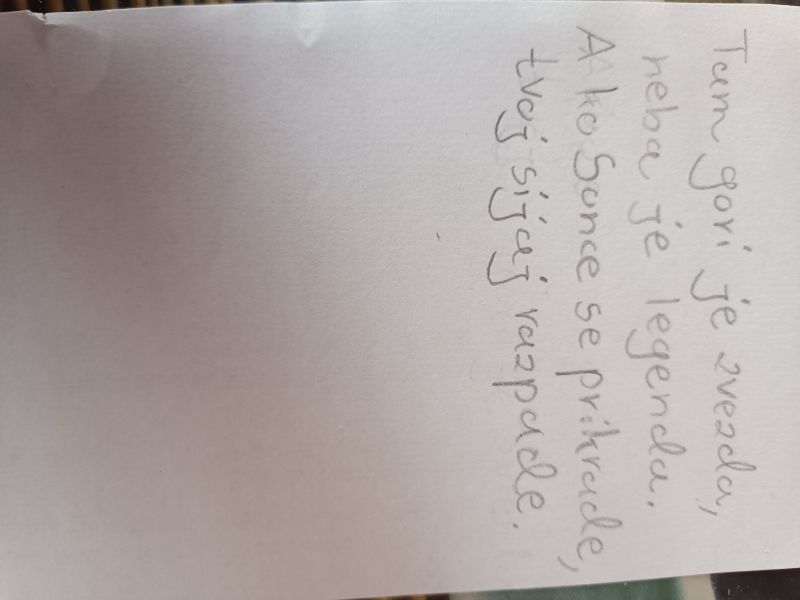 Tam gori je zvezda,
neba je legenda.
A ko Sonce se prikrade,
tvoj sijaj razpade.